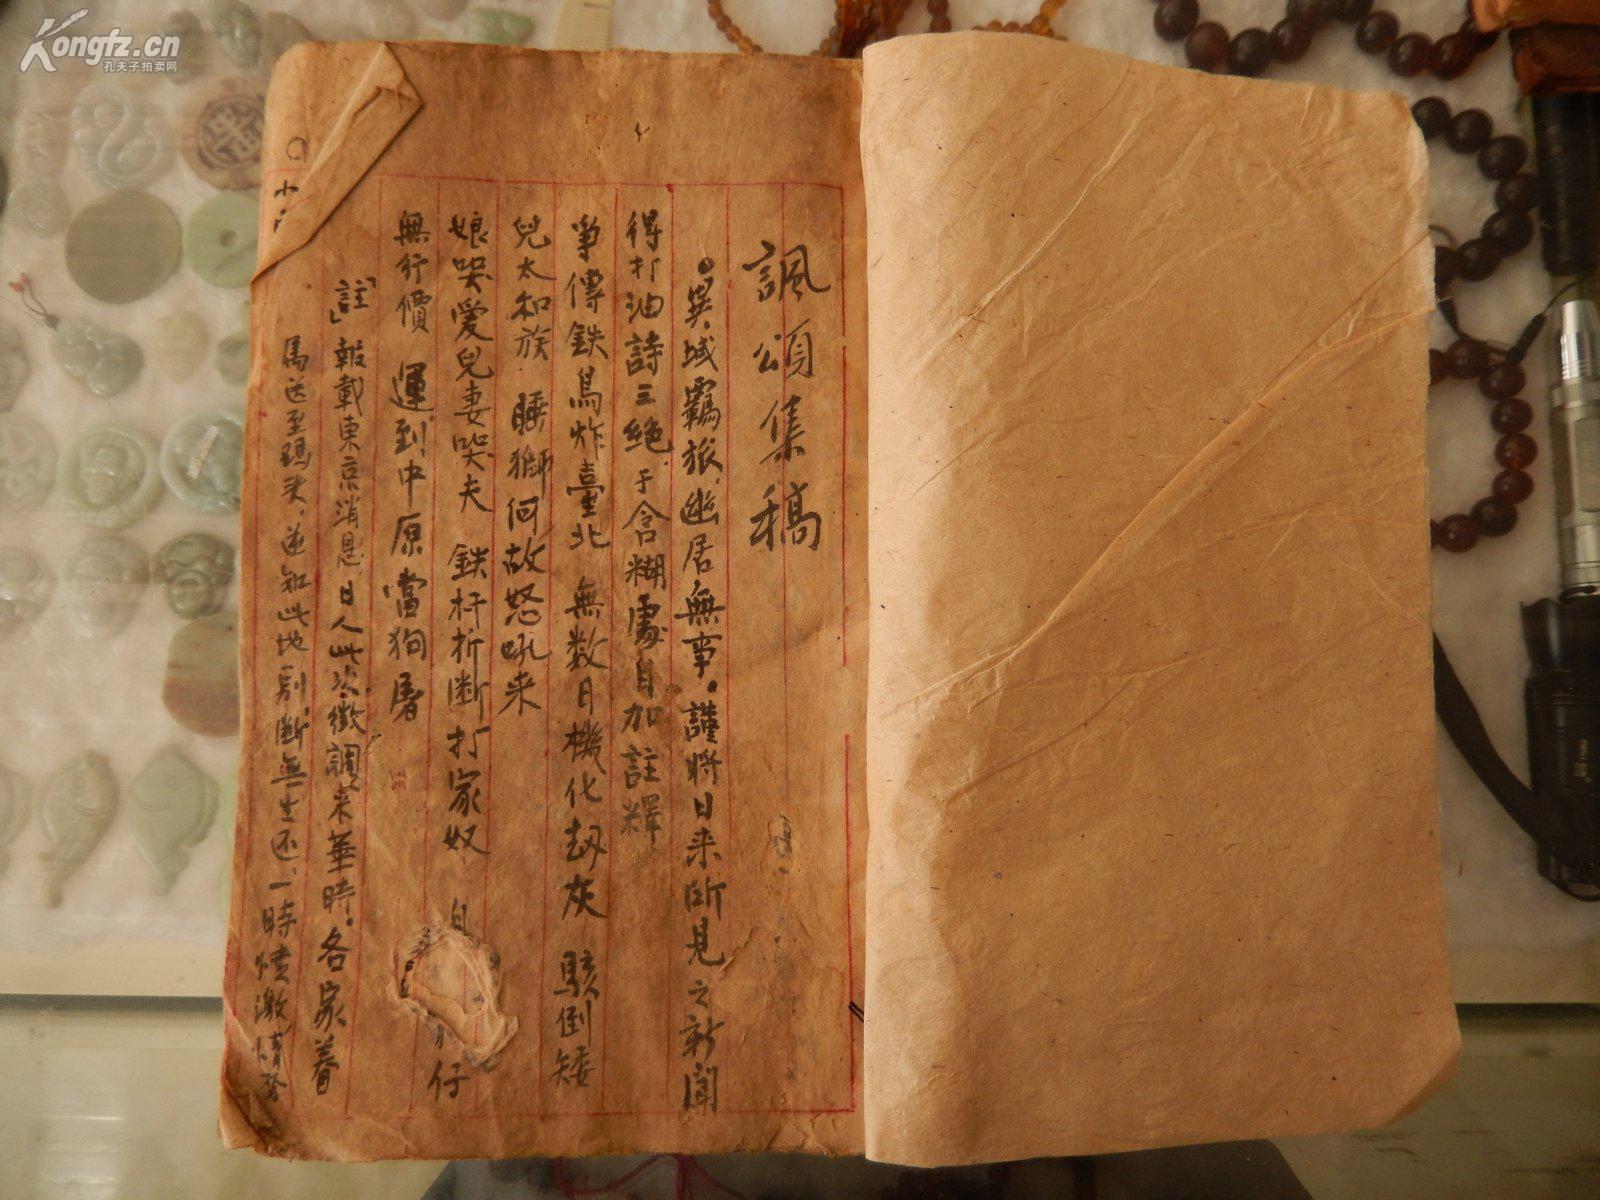 諷頌集稿
異域羈旅、幽居無事。謹將日来所見之新聞
得打油詩三絶于含糊處自加註釋
爭傳鉄鳥炸臺北 無数日機化劫灰 駭倒矮
兒太和族 睡獅何故怒吼来
娘哭愛兒妻哭夫 鉄杆折断打家奴 自 仔
無行價 運到中原當狗屠
「註」報載東京消息日人此次徵調来華時。各家眷
屬送至碼头,逆知此地别,断無生还、一時憤激情
Kongfz.cn
孔夫子拍卖网